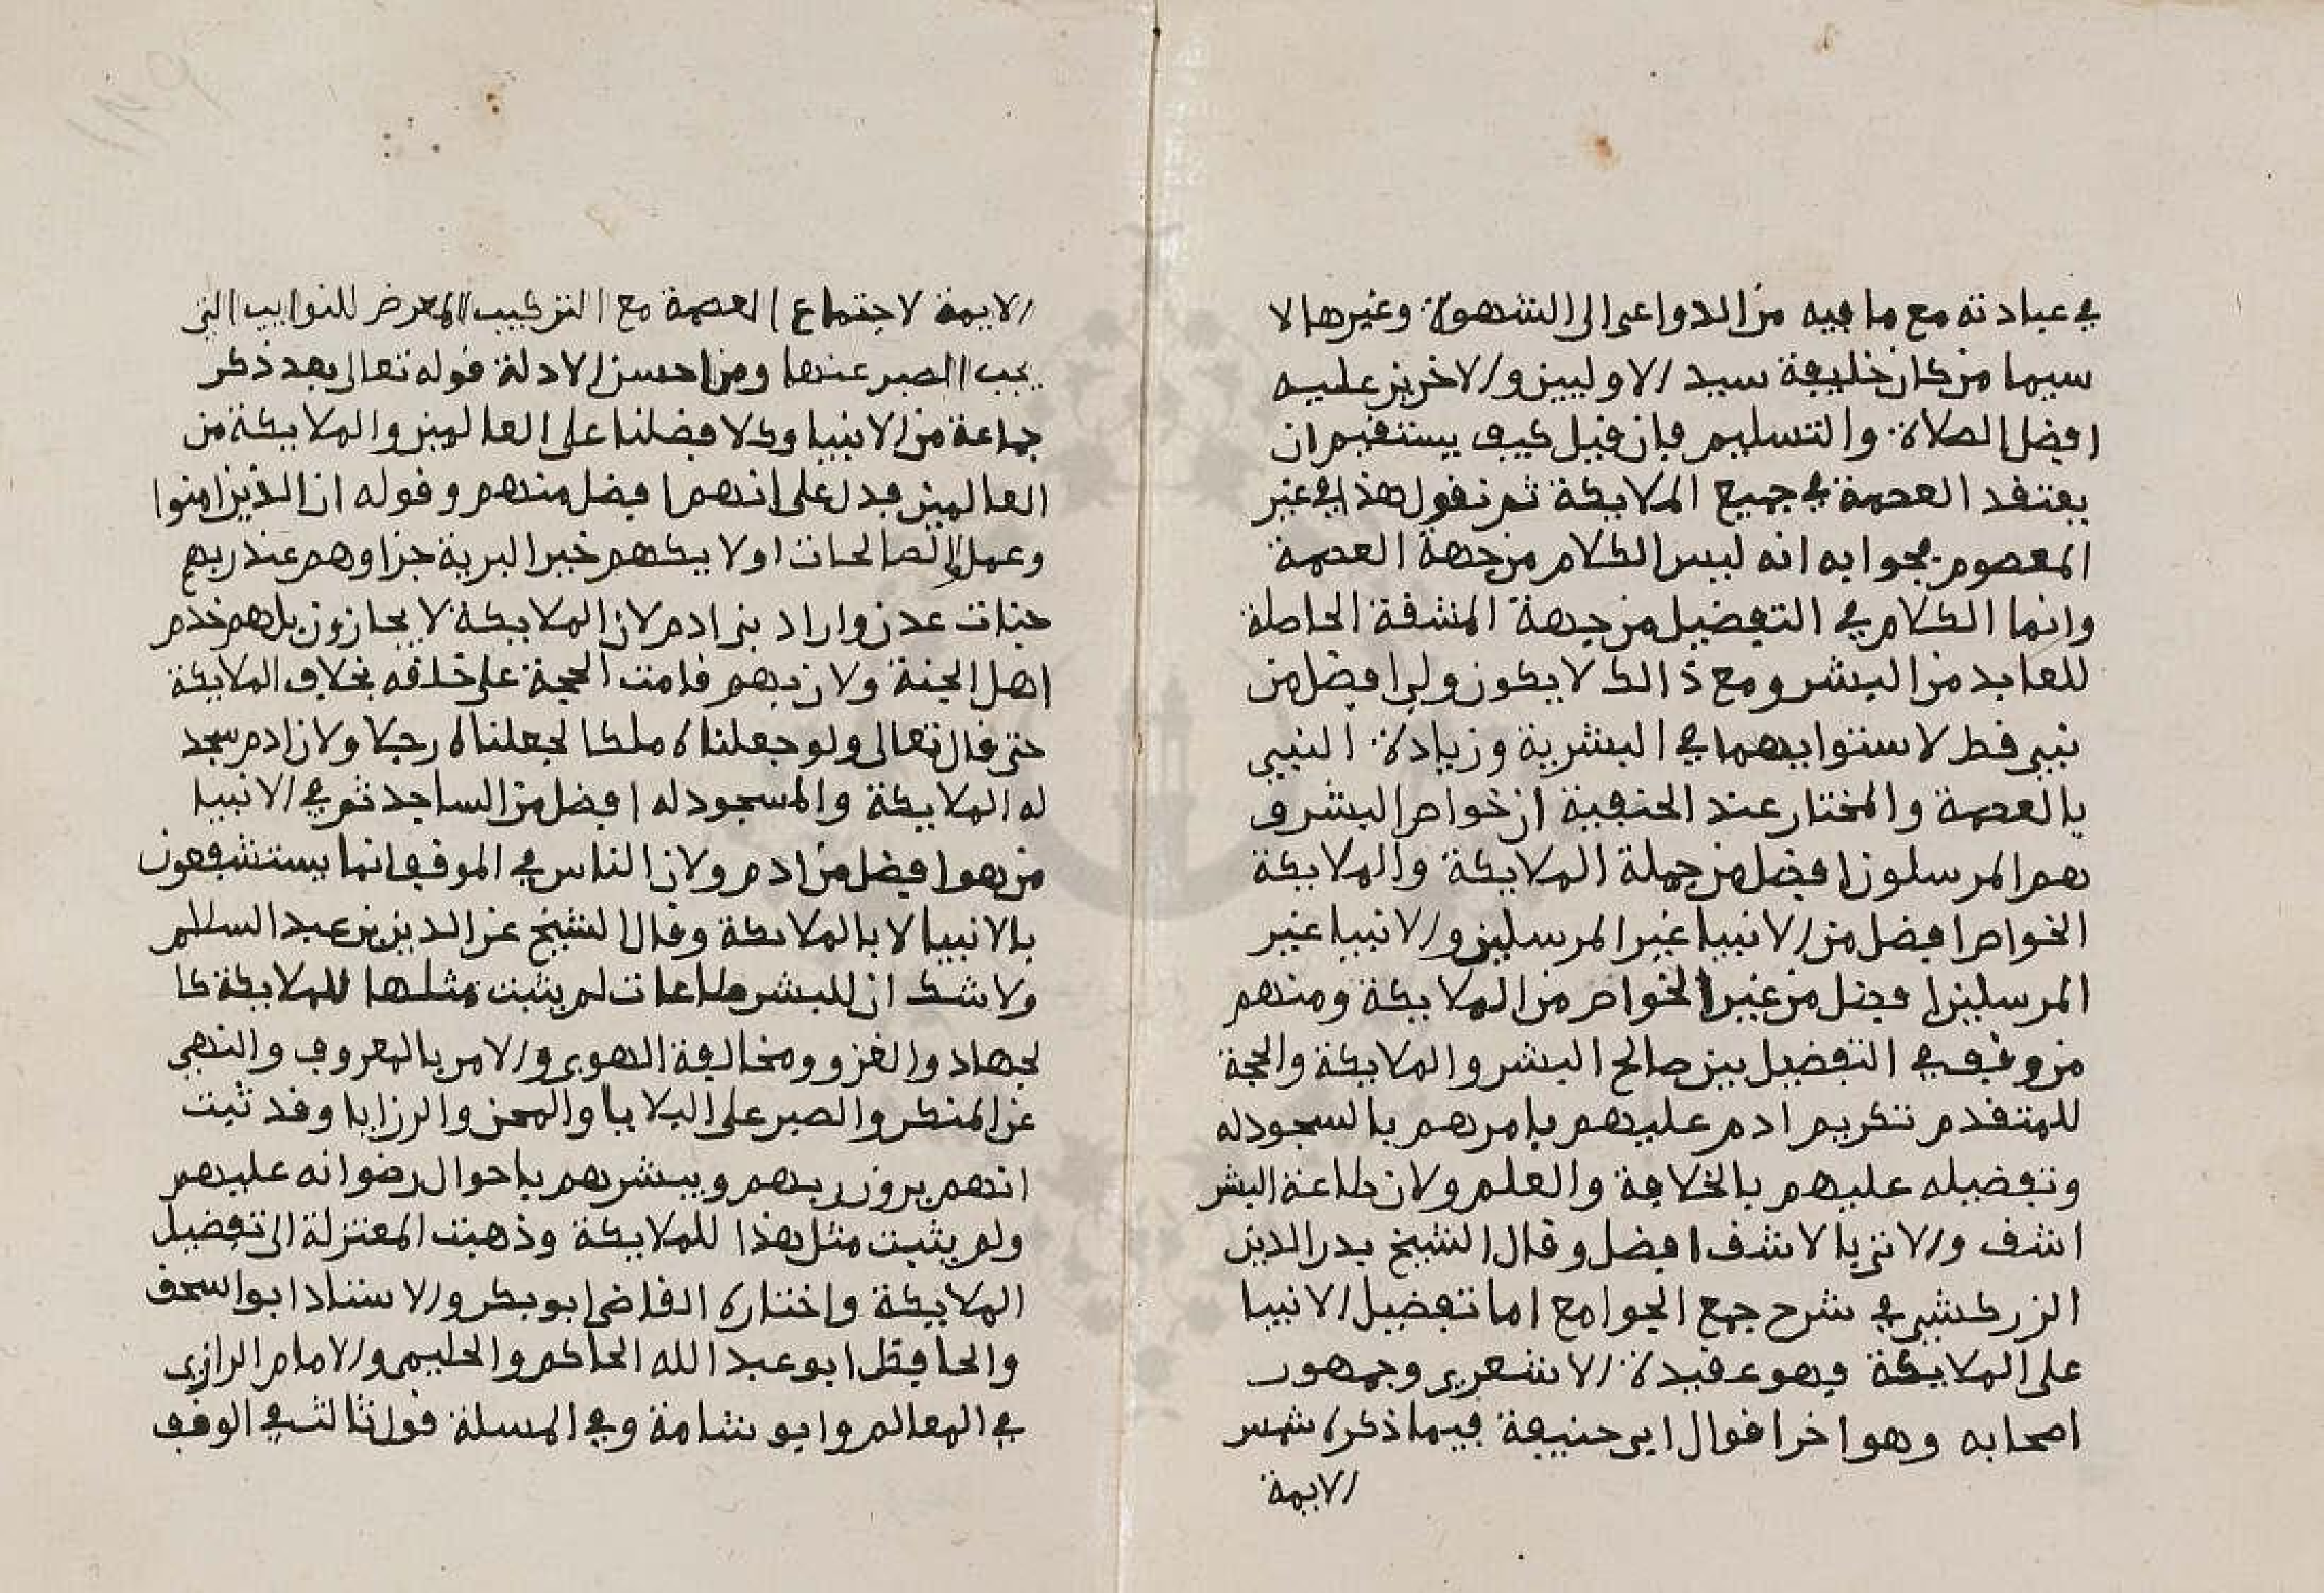 في عبادته مع ما فيه من الدواعى الى الشهوة وغيرها لا
سيما من كان خليفة سيد الاوليين والاخرين عليه
افضل الصلاة والتسليم فان قيل كيف يستقيم ان
يعتقد العصمة في جميع الملايكة ثم نقول هذا في غير
المعصوم فجوابه انه ليس الكلام من جهة العصمة
وانما الكلام في التفضيل من جهة المشقة الحاصلة
للعابد من البشر ومع ذالك لا يكون ولي افضل من
نبي قط لاستوايهما في البشرية وزيادة النبي
بالعصمة والمختار عند الحنفية ان خواص البشر و
هم المرسلون افضل من جملة الملايكة والملايكة
الخواص افضل من الانبيا غير المرسلين والانبيا غير
المرسلين افضل من غير الخواص من الملايكة ومنهم
من وقف في التفضيل بين صالح البشر والملايكة والحجة
للمتقدم تكريم ادم عليهم بامرهم بالسجود له
وتفضيله عليهم بالخلافة والعلم ولان طاعة البشر
اشق والاتي بالاشق افضل وقال الشيخ بدر الدين
الزركشي في شرح جمع الجوامع اما تفضيل الانبيا
على الملايكة فهو عقيدة الاشعري وجمهور
اصحابه وهو اخر اقوال ابي حنيفة فيما ذكره شمس
الايمة
الايمة لاجتماع العصمة مع التركيب المعرض للنوايب التي
يجب الصبر عندها ومن احسن الادلة قوله تعالى بعد ذكر
جماعة من الانبيا وكلا فضلنا على العالمين والملايكة من
العالمين فدل على انهم افضل منهم وقوله ان الذين امنوا
وعملوا الصالحات اولايكهم خير البرية جزاوهم عند ربهم
جنات عدن واراد بني ادم لان الملايكة لا يجازون بل هم خدم
اهل الجنة ولان بهم قامت الحجة على خلقه بخلاف الملايكة
حتى قال تعالى ولو جعلناه ملكا لجعلناه رجلا ولان ادم سجد
له الملايكة والمسجود له افضل من الساجد ثم في الانبيا
من هو افضل من ادم ولان الناس في الموقف انما يستشفعون
بالانبيا لا بالملايكة وقال الشيخ عز الدين بن عبد السلام
ولا شك ان للبشر طاعات لم يثبت مثلها للملايكة كا
لجهاد والغزو ومخالفة الهوى والامر بالمعروف والنهي
عن المنكر والصبر على البلايا والمحن والرزايا وقد ثبت
انهم يرون ربهم ويبشرهم باحوال رضوانه عليهم
ولم يثبت مثل هذا للملايكة وذهبت المعتزلة الى تفضيل
الملايكة واختاره القاضي ابو بكر والاستاد ابو اسحق
والحافظ ابو عبد الله الحاكم والحليمي والامام الرازي
في المعالم وابو شامة وفي المسلة قول ثالث في الوقف